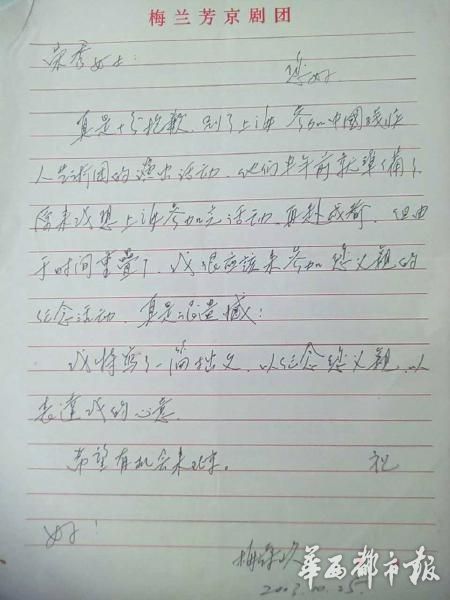 梅兰芳京剧团
宋秀女士:
您好
真是十分抱歉,到了上海参加中国残疾
人艺术团的演出活动,他们半年前就准备了,
原来我想上海参加完活动,再赴成都,但由
于时间重叠了,我很应该来参加您父亲的
纪念活动,真是很遗憾!
我特写了一篇拙文,以纪念您父亲,以
表达我的心意。
希望有机会来北京。 祝
好!
梅葆玖
2003.10.25.
华西都市报